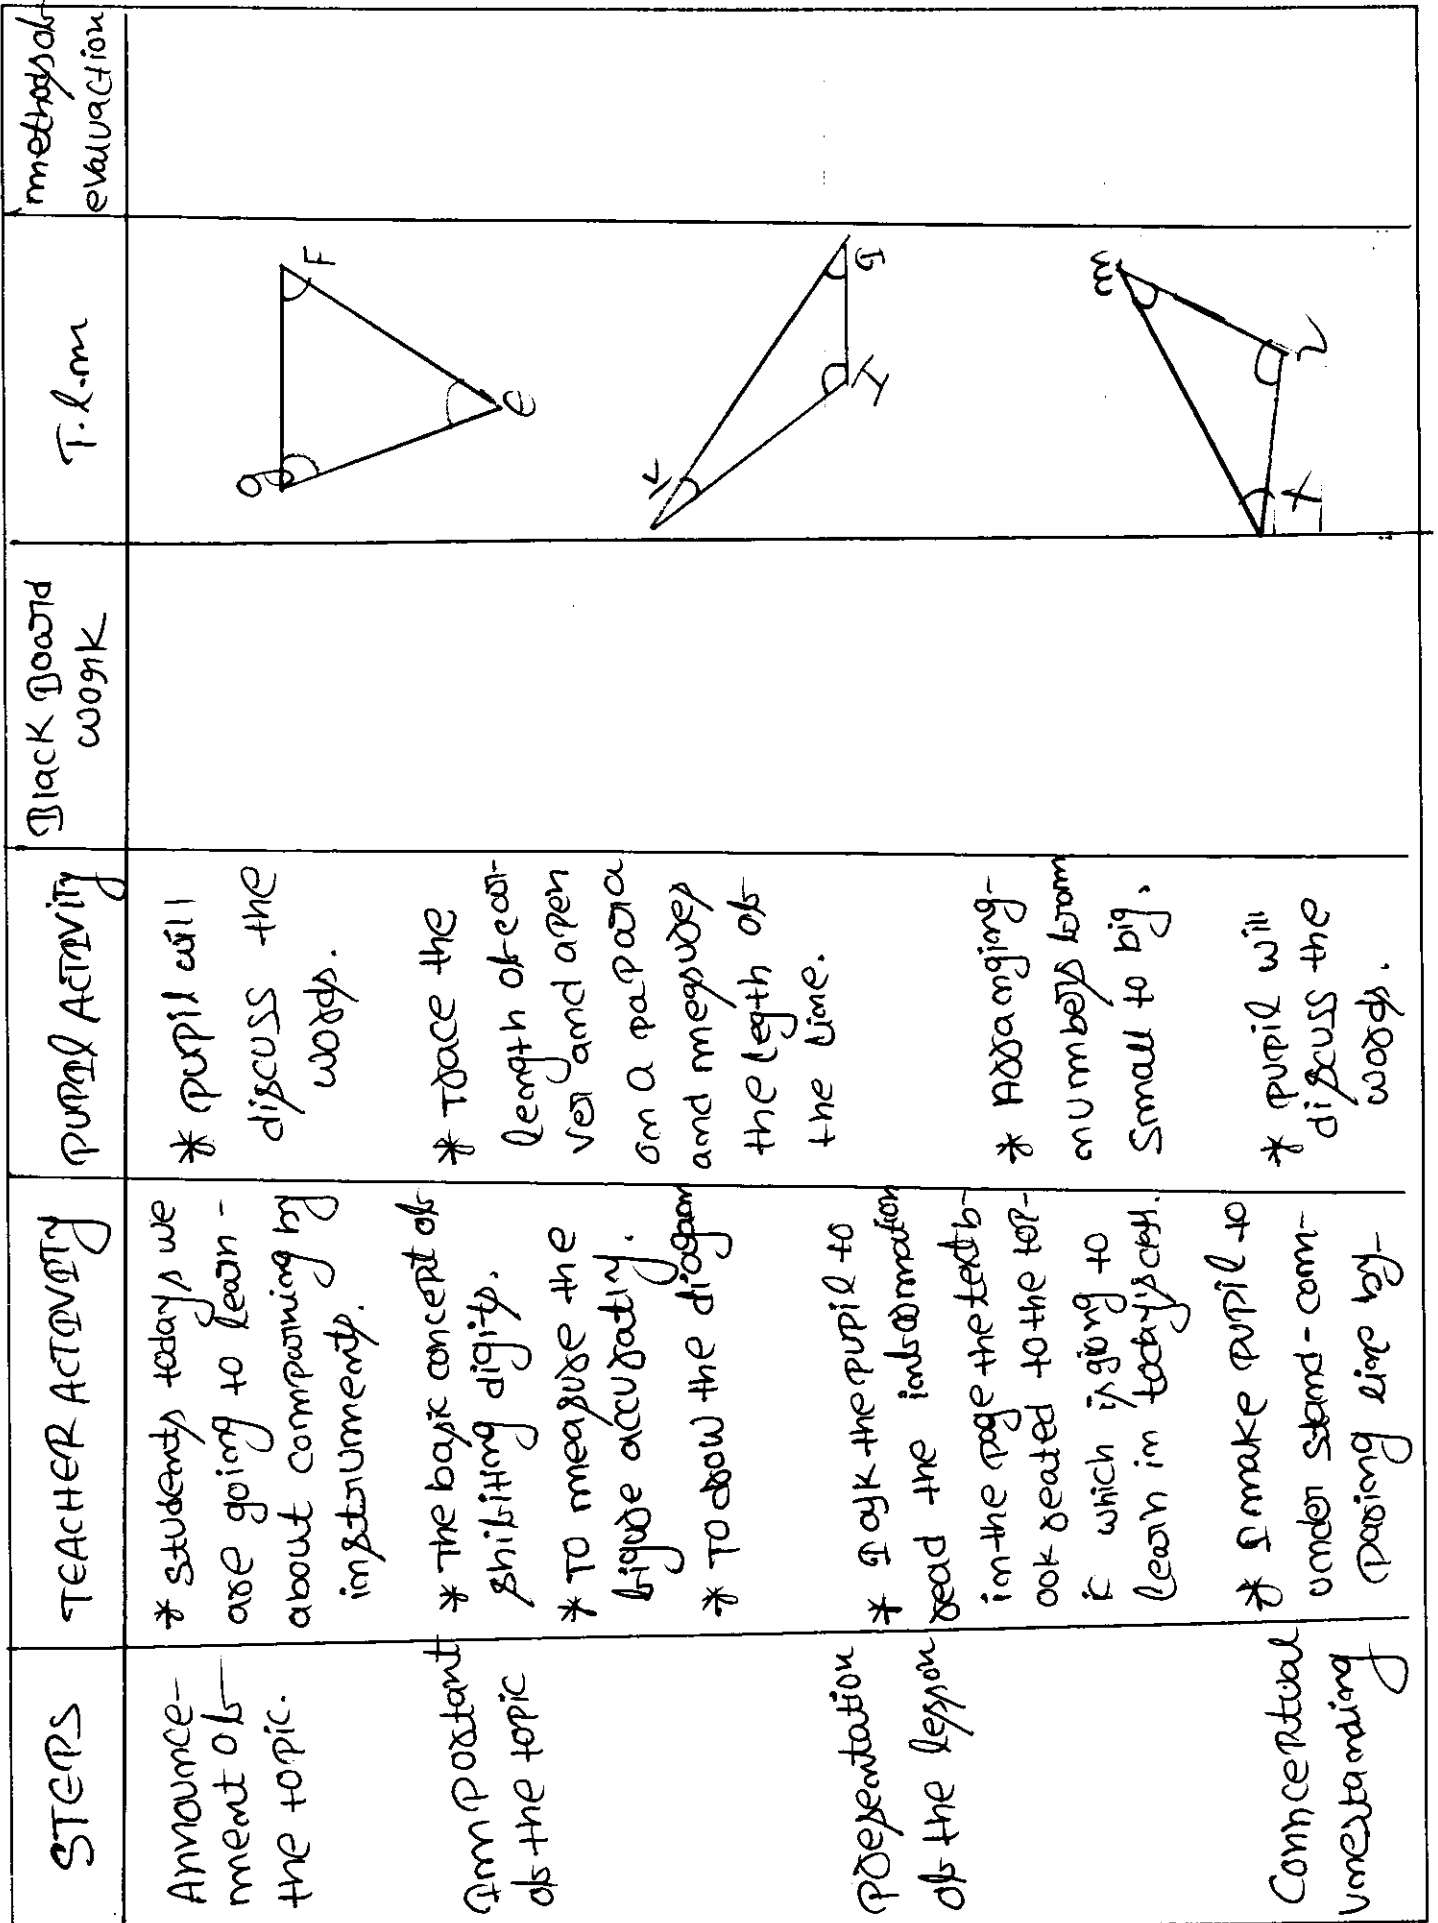 STEPS
TEACHER ACTIVITY
PUPIL ACTIVITY
Black Board
work
T.l.m
methods of
evaluaction
Announce-
ment of
the topic.
* students todays we
are going to learn-
about comparning by
instruments.
* pupil will
discuss the
words.
Important
of the topic
* The basic concept of
shifting digits.
* To measure the
figure accuratly.
* To draw the diagram
* Trace the
length of
ver and a pen
on a papara
and measures
the legth of
the line.
Presentation
of the lesson
* I ask the pupil to
read the information
in the page the textb-
ook reated to the top-
ic which is giong to
learn in today's class.
* Arranging-
numbers from
small to big.
Connceptual
unestanding
* I make pupil to
under stand-com-
paring line by-
* pupil will
discuss the
words.
g
F
e
K
G
I
m
L